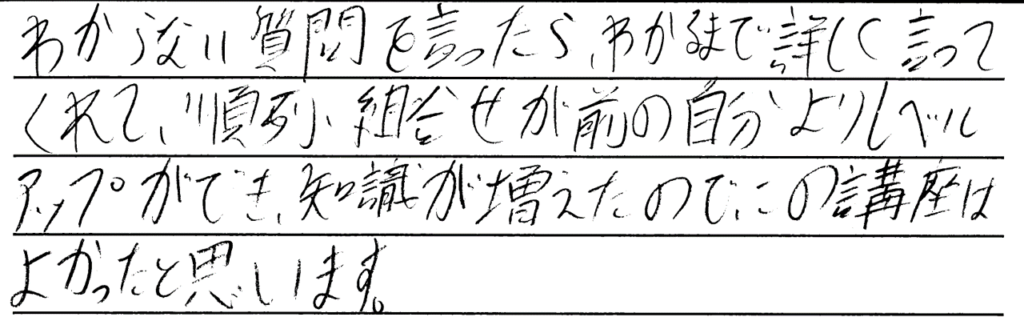 わからない質問を言ったら、わかるまで詳しく言って
くれて、順列、組合せが前の自分よりレベル
アップができ、知識が増えたので、この講座は
よかったと思います。